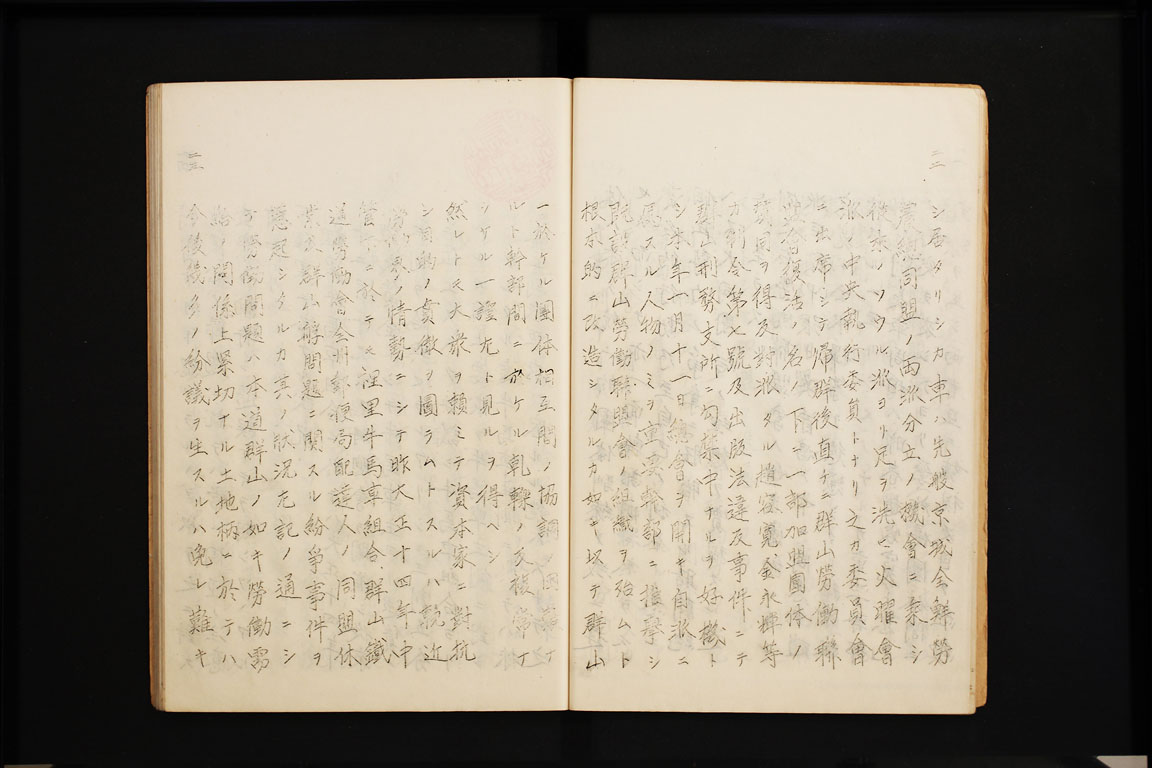 二二
シ居タリシカ車ノ先般京城全鮮勞
農總同盟ノ両派分立ノ機會ニ乘シ
從來ノソウル派ヨリ足ヲ洗ヒ火曜會
派ノ中央執行委員トナリ之カ委員會
ニ出席シテ帰群後直チニ群山勞働聯
盟會復活ノ名ノ下ニ一部加盟團体ノ
賛同ヲ得及對派タル趙容寛、金永輝等
カ制令第七號及出版法違反事件ニテ
群山刑務支所ニ勾禁中ナルヲ好機ト
シ本年一月十一日總會ヲ開キ自派ニ
属スル人物ノミヲ重要幹部ニ推擧シ
既設群山勞働聯盟會ノ組織ヲ殆ムト
根本的ニ改造シタルカ如キ以テ群山
二三
ニ於ケル團体相互間ノ協調ノ困難ナ
ルト幹部間ニ於ケル軋轢ノ反複常ナ
シケル一證左ト見ルヲ得ヘシ
然レトモ大衆ヲ頼ミテ資本家ニ對抗
シ目的ノ貫徹ヲ圖ラムトスルハ競近
勞働界ノ情勢ニシテ昨大正十四年中
管下ニ於テモ裡里牛馬車組合、群山鐵
道勞働會
郵便局配達人ノ同盟休
業
群山
問題ニ関スル紛爭事件ヲ
惹起シタルカ其ノ狀況左記ノ通ニシ
テ勞働問題ハ本道群山ノ如キ勞働需
給ノ関係上緊切ナル土地柄ニ於テハ
今後幾多ノ紛議ヲ生スルハ免レ難キ